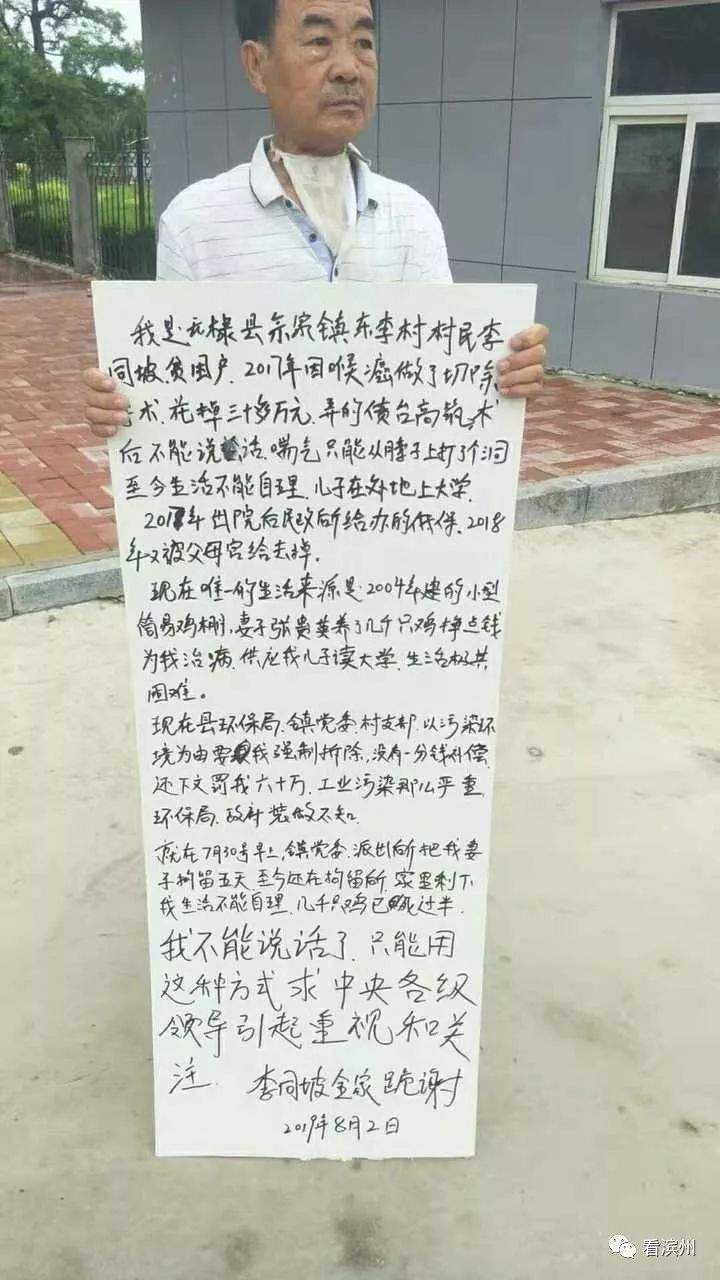 我是无棣县佘家镇东李村村民李
同坡、贫困户. 2017年因喉癌做了切除
手术. 花掉三十多万元. 弄的债台高筑. 术
后不能说话. 喘气只能从脖子上打了个洞
至今生活不能自理. 儿子在外地上大学.
2017年出院后民政所给办的低保. 2018
年又被父母官给去掉.
现在唯一的生活来源是: 2004年建的小型
简易鸡棚. 妻子张贵英养了几千只鸡挣点钱
为我治病. 供应我儿子读大学. 生活极其
困难。
现在县环保局. 镇党委. 村支部. 以污染环
境为由要我强制拆除. 没有一分钱补偿.
还下文罚我六十万. 工业污染那么严重.
环保局. 政府装做不知.
就在7月30号早上. 镇党委. 派出所把我妻
子拘留五天. 至今还在拘留所. 家里剩下
我生活不能自理. 几千只鸡已死过半.
我不能说话了. 只能用
这种方式求中央各级
领导引起重视和关
注.
李同坡全家跪谢
2019年8月2日
看滨州